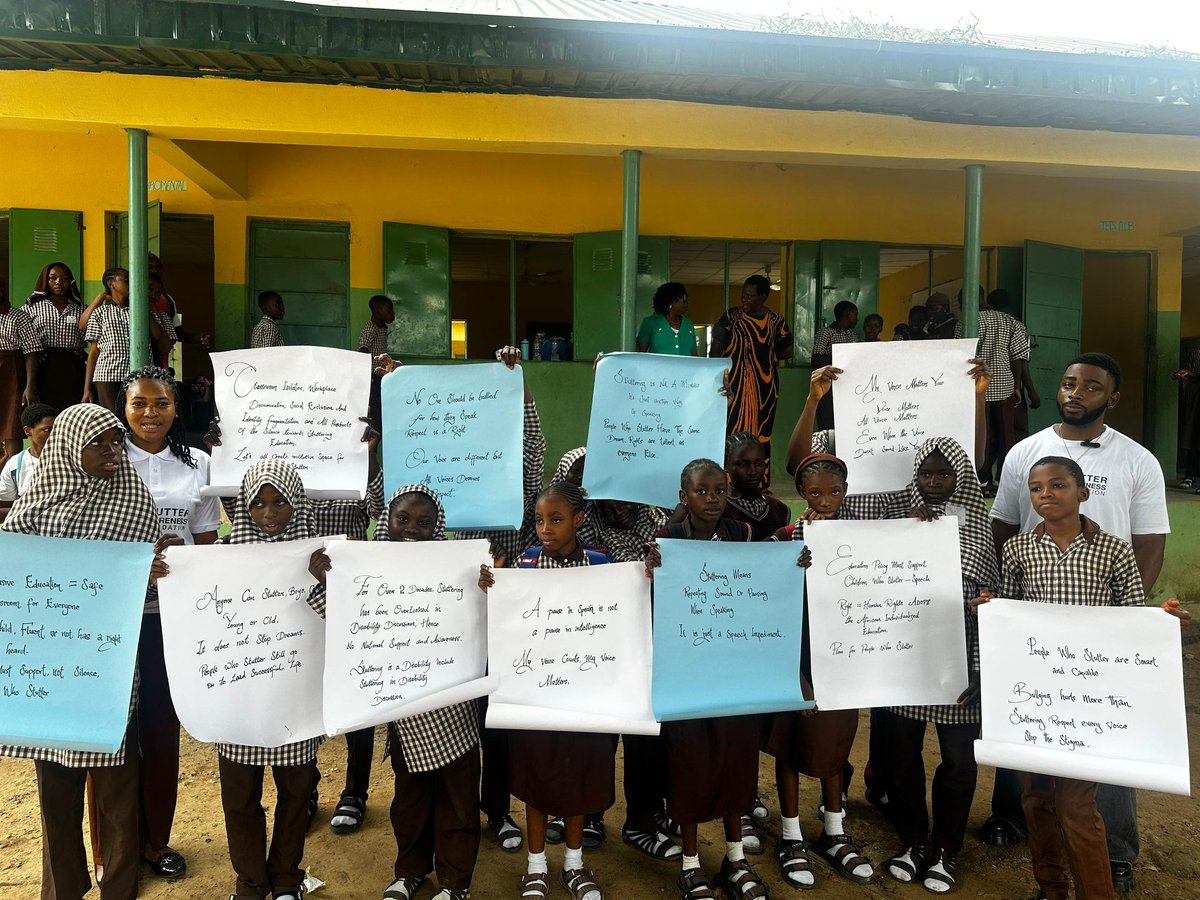 JETS CLUB
Classroom Isolation, Workplace
Discrimination, Social Exclusive And
Identity fragmentation are All Products
of the Silence towards Stuttering
Education.
Let's all Create inclusive Space for
No One Should be bullied
For how they Speak
Respect is a Right
Our Voice are different but
All Voices Deserves
Respect.
Stuttering is Not A Mistake
It's Just another way
of Speaking
People Who Stutter Have The Same
Dream, Rights are Talent as
everyone Else.
My Voice Matters Your
Voice Matters
All Voice Matters.
Even When the Voice
Doesnt Sound Like
TTER
RENESS
DATION
UTTER
ENESS
ATION
usive Education = Safe
ssroom for Everyone
Child, Fluent or not has a right
heard.
Support, not Silence,
Who Stutter
Anyone Can Stutter, Boys,
Young or Old.
It does not Stop Dreams.
People Who Stutter Still go
on to Lead Successful Life
For Over 2 Decades Stuttering
has been Overlooked in
Disability Discussions, Hence
No National Support and Awareness.
Stuttering is a Disability Include
Stuttering in Disability
Discussion.
A pause in Speech is not
a pause in intelligence
My Voice Counts, My Voice
Matters.
Stuttering Means
Repeating Sound Or Pausing
When Speaking
It is just a Speech Impediment.
Education Policy Must Support
Children Who Stutter - Speech
Right = Human Rights
the African Individualized
Education.
Plan for People Who Stutter
People Who Stutter are Smart
and Capable
Bullying hurts More than
Stuttering Respect every Voice
Stop the Stigma.